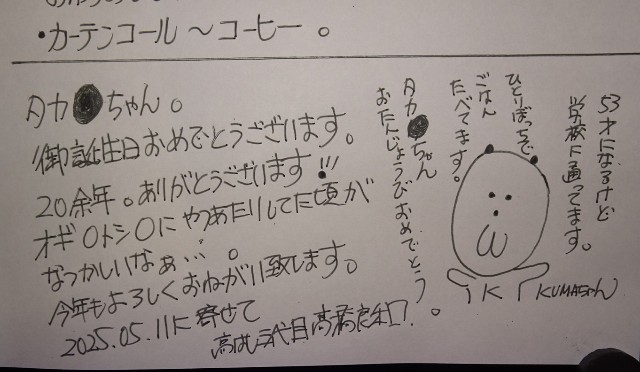 ・カーテンコール～コーヒー。
タカ●ちゃん。
御誕生日おめでとうございます。
20余年。ありがとうございます!!!
オギ〇トシ〇にやつあたりしてた頃が
なつかしいなぁ…。
今年もよろしくおねがい致します。
2025.05.11に寄せて
三代目高橋
タカ●ちゃん
おたんじょうびおめでとう。
ひとりぼっちで
ごはん
たべてます。
53才になるけど
学校に通ってます。
K
KUMAちゃん